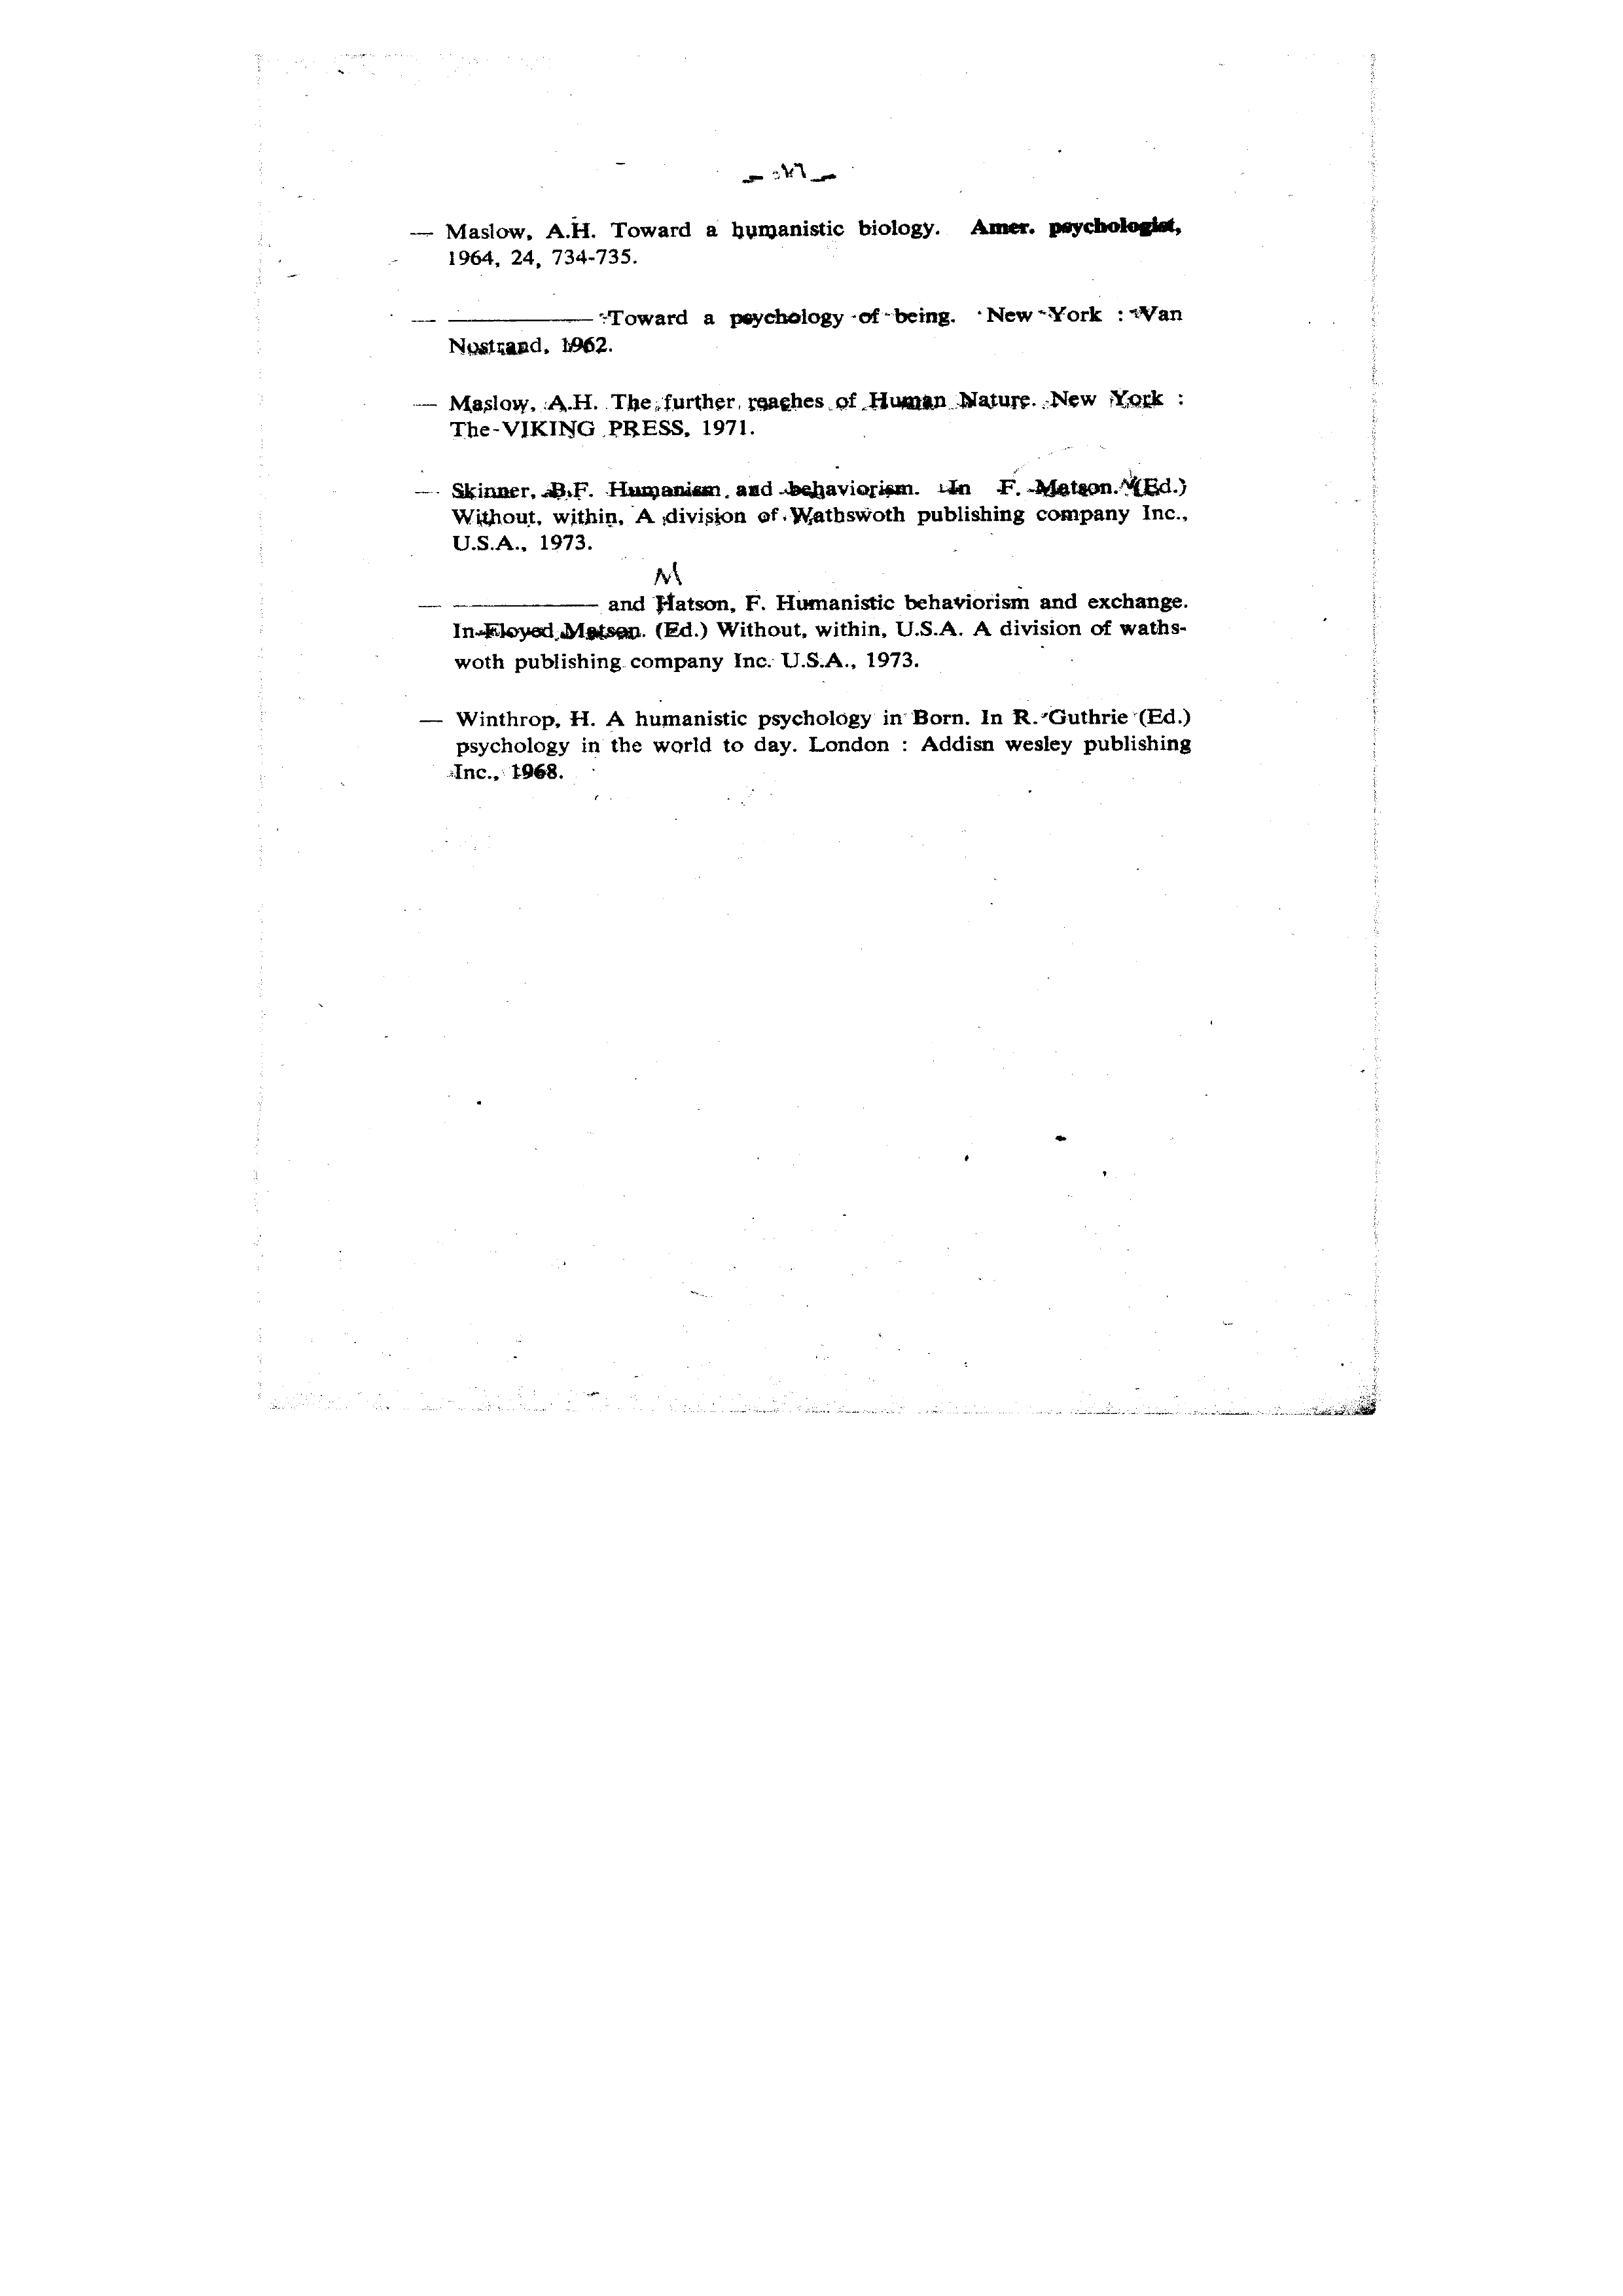 — Maslow, A.H. Toward a humanistic biology. Amer. psychologist,
1964, 24, 734-735.
— ———— Toward a psychology of being. New York : Van
Nostrand, 1962.
— Maslow, A.H. The further reaches of Human Nature. New York :
The VIKING PRESS, 1971.
— Skinner, B.F. Humanism and behaviorism. In F. Matson. (Ed.)
Without, within, A division of Wathswoth publishing company Inc.,
U.S.A., 1973.
M
— ———— and Hatson, F. Humanistic behaviorism and exchange.
In Floyed Matson. (Ed.) Without, within, U.S.A. A division of waths-
woth publishing company Inc. U.S.A., 1973.
— Winthrop, H. A humanistic psychology in Born. In R. Guthrie (Ed.)
psychology in the world to day. London : Addisn wesley publishing
Inc., 1968.